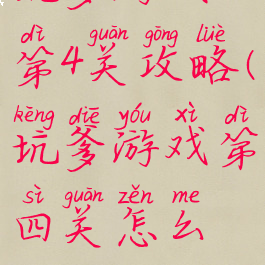 dì guān gōng lüè
第4关攻略(
kēng diē yóu xì dì
坑爹游戏第
sì guān zěn me
四关怎么